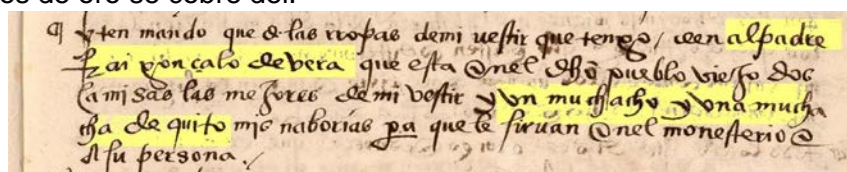 ¶ yten mando que de las rropas de mi vestir que tengo / den al padre
frai gonçalo de vera que esta en el dho pueblo viejo dos
camisas las mejores de mi vestir y un muchacho y una mucha
cha de quito mis naborias pa que le sirvan en el monesterio e
a su persona ./